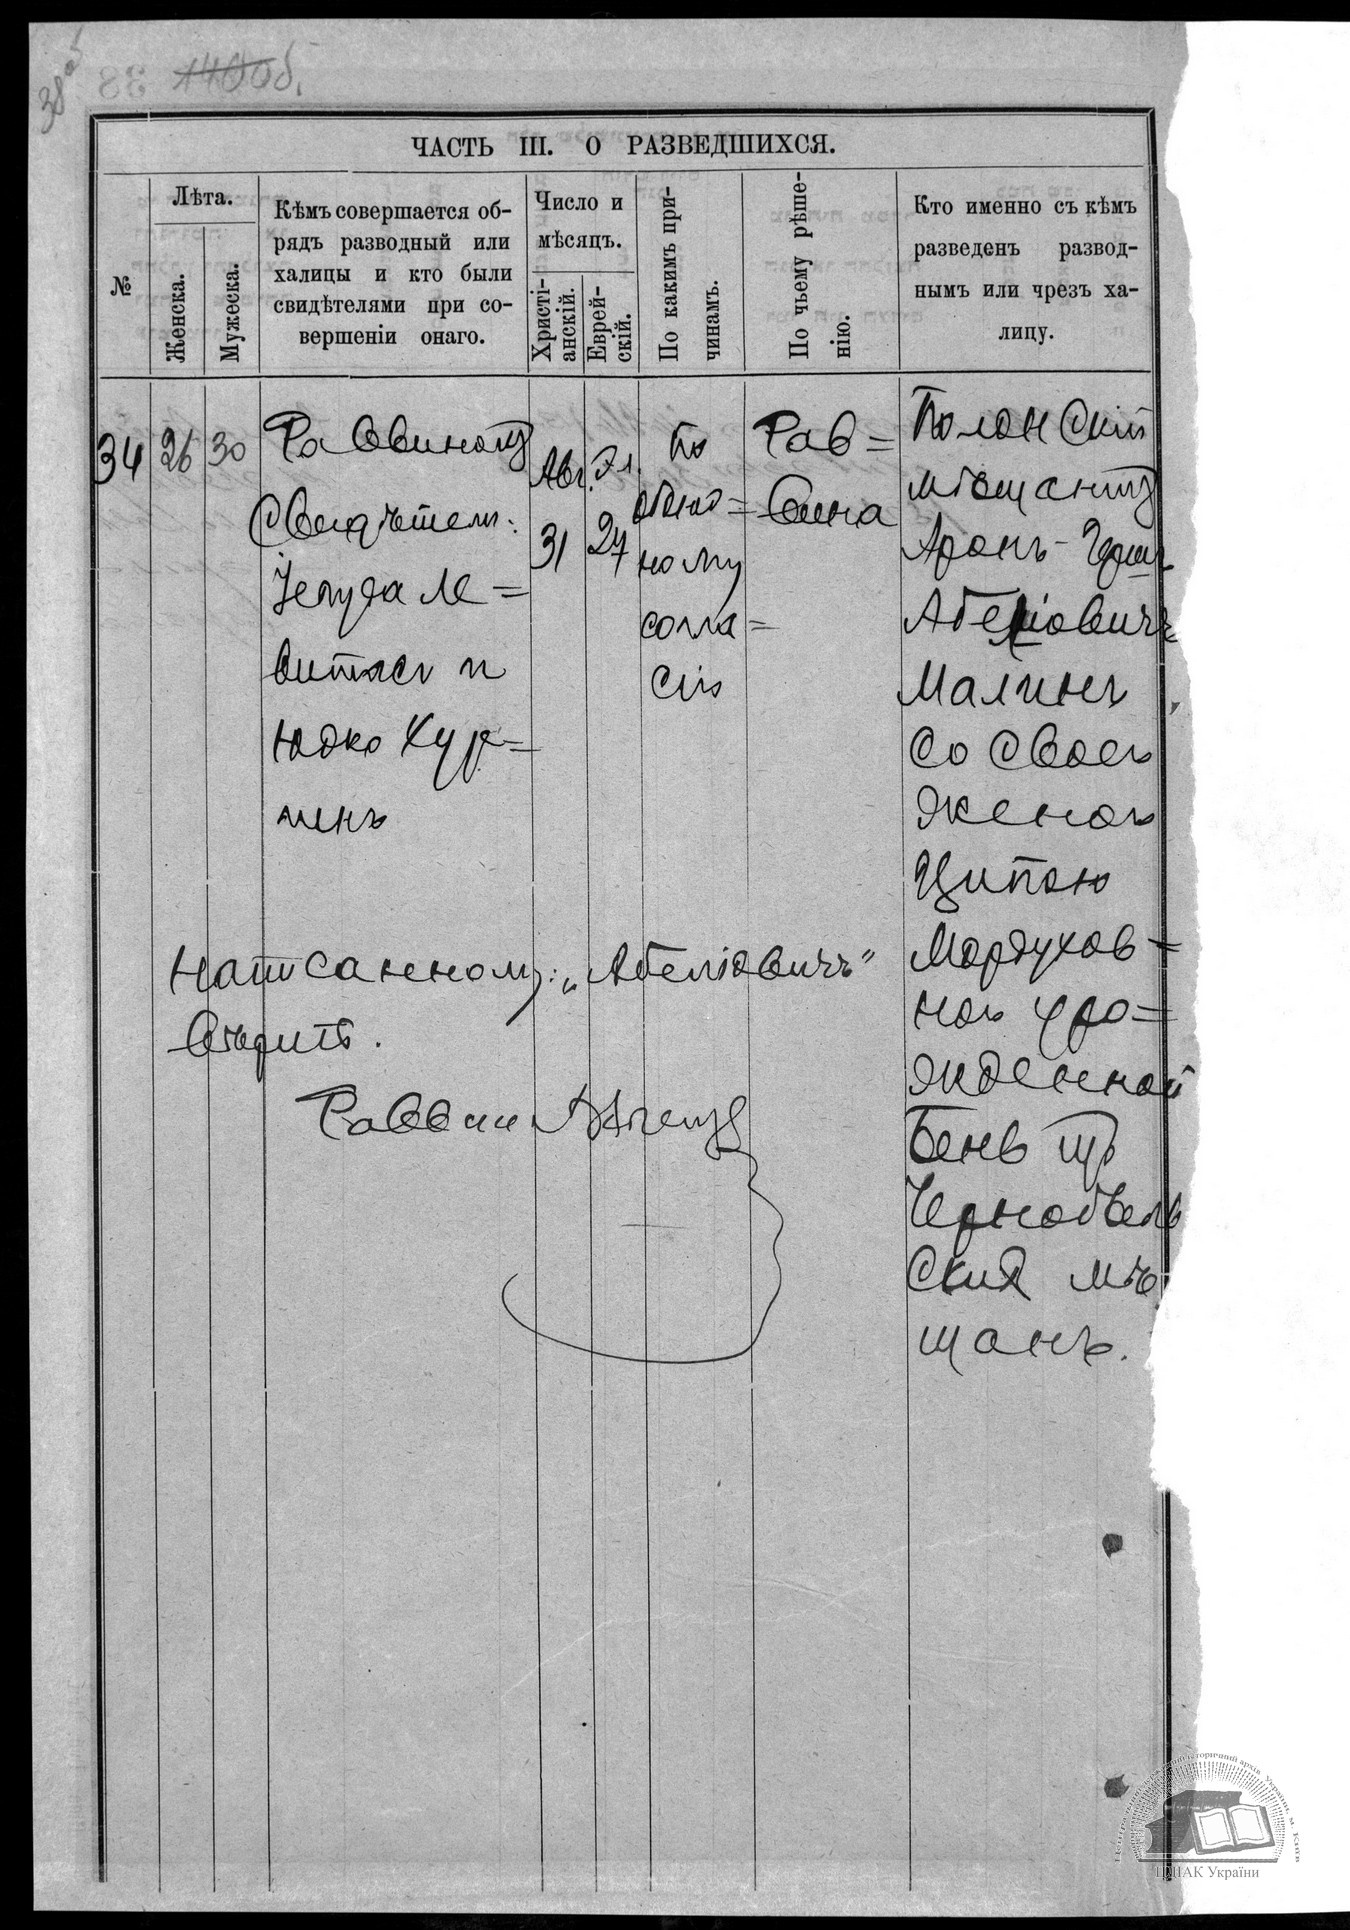 38 об
140об.
ЧАСТЬ III. О РАЗВЕДШИХСЯ.
№
Лѣта.
Женска.
Мужеска.
Кѣмъ совершается об-
рядъ разводный или
халицы и кто были
свидѣтелями при со-
вершеніи онаго.
Число и
мѣсяцъ.
Христі-
анскій.
Еврей-
скій.
По какимъ при-
чинамъ.
По чьему рѣше-
нію.
Кто именно съ кѣмъ
разведенъ развод-
нымъ или чрезъ ха-
лицу.
34
26
30
Раввиномъ
Свидѣтели:
Іегуда Ле=
витасъ и
Юдко Хур=
Авг.
31
Эл.
27
По
обоюд=
ному
согла=
сію
Рав=
вина
Полонскій
мѣщанинъ
Аронъ-Герш
Абеліовичъ
Малинъ
со своей
женой
Ципою
Мордухов=
ной уро=
жденной
Бенъ
Чернобыль
скихъ мѣ
щанъ.
Написанному: „Абеліовичъ"
вѣрить.
Раввин
Центральний державний історичний архів України, м. Київ
ЦДІАК України